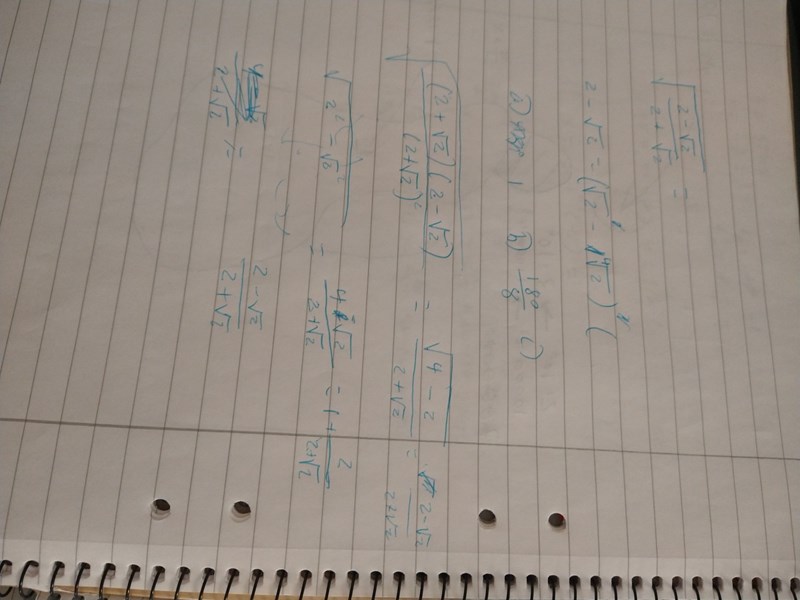 √((2-√2)/(2+√2)) =
2 - √2 = (√2 - √2) (
a) 1 b) 180/8 c)
√((2+√2)(2-√2)/(2+√2)²) = √(4-2)/(2+√2) = (2-√2)/(2+√2)
√(2²-√2²) = (4+√2)/(2+√2) = 1 + 2/(2+√2)
/(2+√2) = (2-√2)/(2+√2)